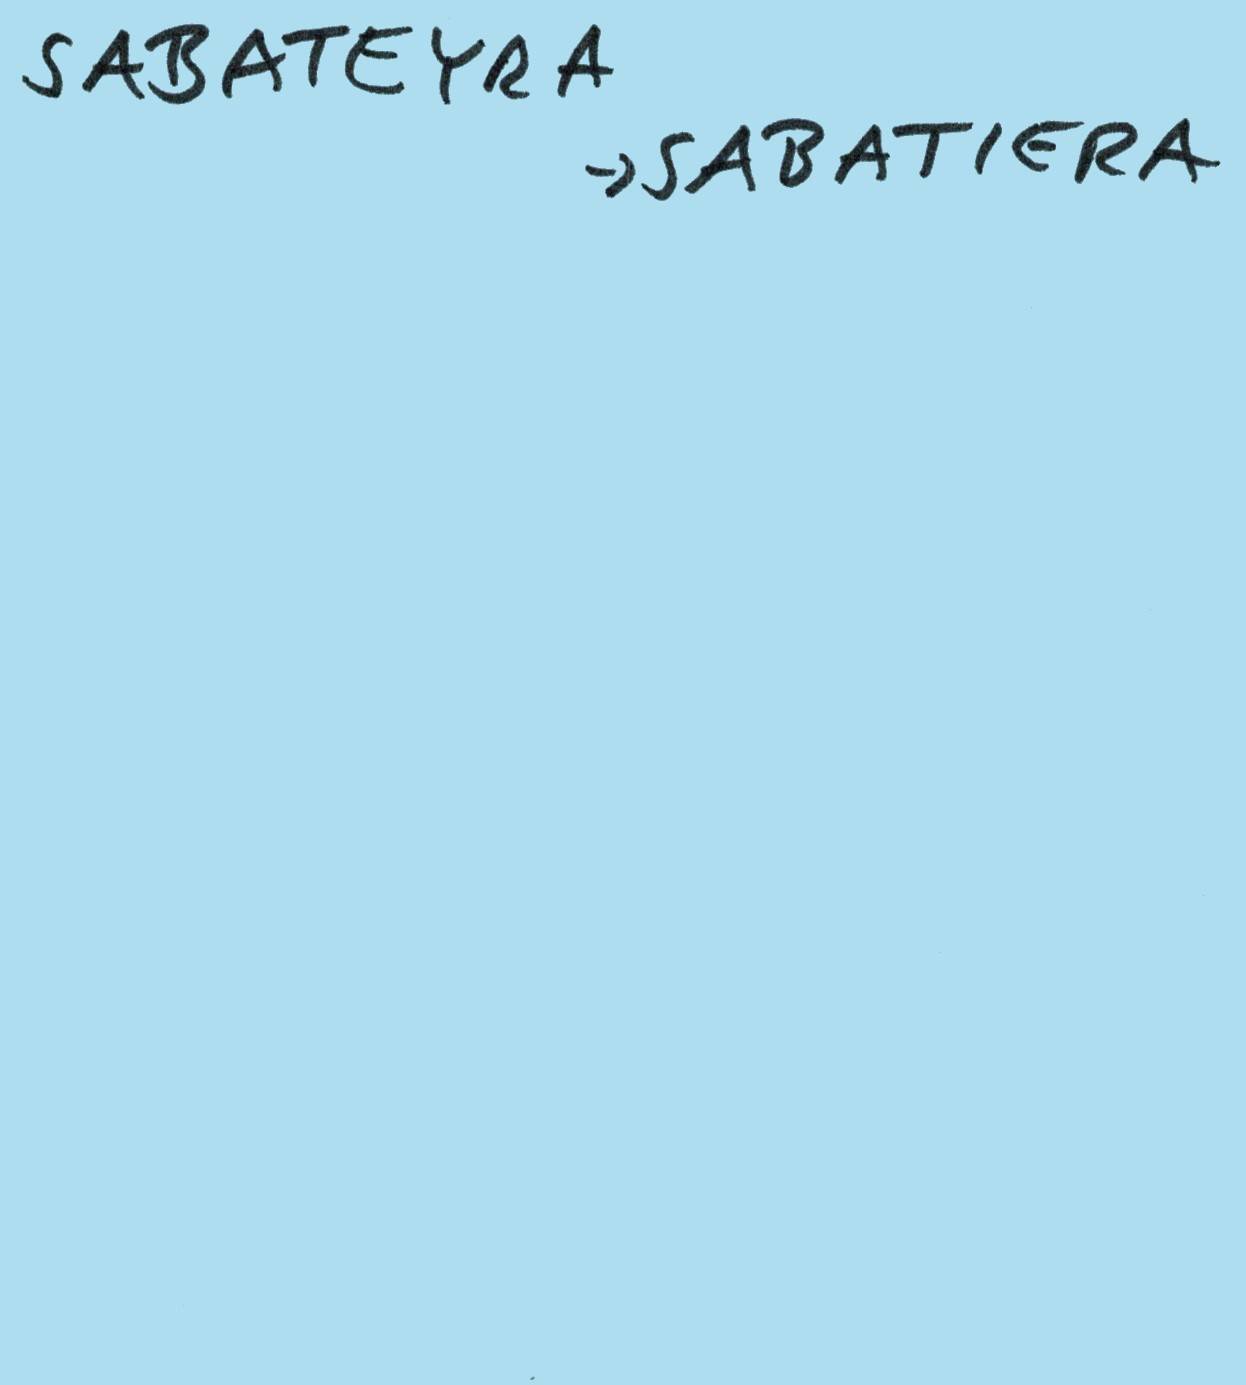 SABATEYRA
→SABATIERA